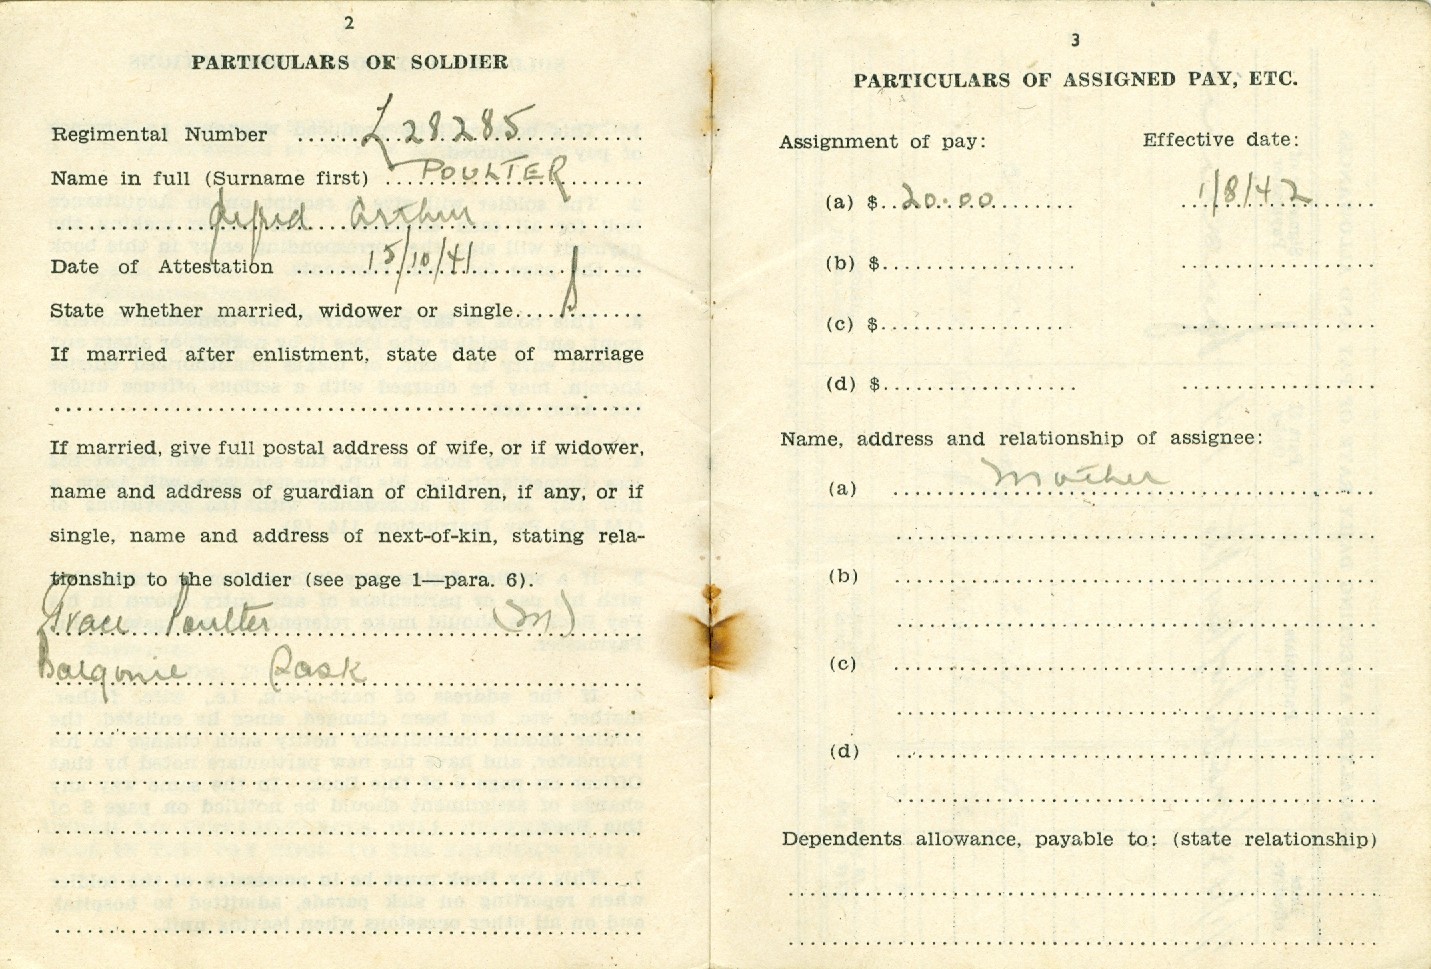 2
PARTICULARS OF SOLDIER
Regimental Number ...... L28285
Name in full (Surname first) ... POULTER
Alfred Arthur
Date of Attestation ...... 15/10/41
State whether married, widower or single.... S
If married after enlistment, state date of marriage
If married, give full postal address of wife, or if widower,
name and address of guardian of children, if any, or if
single, name and address of next-of-kin, stating rela-
tionship to the soldier (see page 1—para. 6).
Grace Poulter (M)
Balgonie Sask
3
PARTICULARS OF ASSIGNED PAY, ETC.
Assignment of pay: Effective date:
(a) $ 20.00 1/8/42
(b) $
(c) $
(d) $
Name, address and relationship of assignee:
(a) Mother
(b)
(c)
(d)
Dependents allowance, payable to: (state relationship)